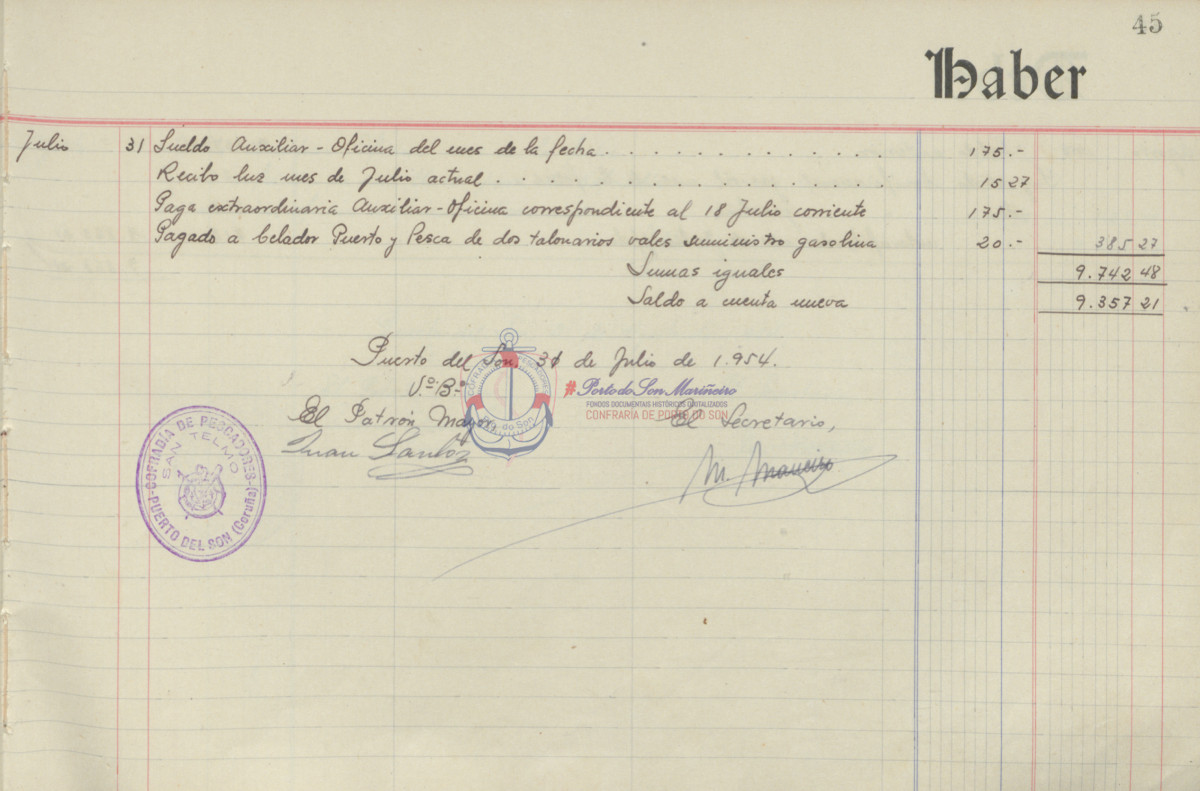 45
Haber
Julio 31 Sueldo Auxiliar - Oficina del mes de la fecha . . . . . . . . . . . . 175.-
Recibo luz mes de Julio actual . . . . . . . . . . . . . . . . 15 27
Paga extraordinaria Auxiliar - Oficina correspondiente al 18 Julio corriente 175.-
Pagado a Celador Puerto y Pesca de dos talonarios vales suministro gasolina 20.- 385 27
Sumas iguales 9.742 48
Saldo a cuenta nueva 9.357 21
Puerto del Son, 31 de Julio de 1.954.
Vº Bº
El Patrón Mayor El Secretario,
Juan Santos M. Maneiro
COFRADÍA DE PESCADORES
SAN TELMO
PUERTO DEL SON (Coruña)
Pto. do Son
#Porto do Son Mariñeiro
FONDOS DOCUMENTAIS HISTÓRICOS DIGITALIZADOS
CONFRARÍA DE PORTO DO SON